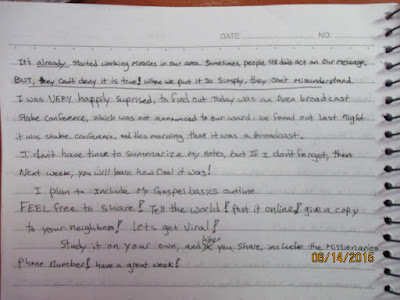 DATE NO.
It's already started working miracles in our area. Sometimes, people still don't act on Our Message,
BUT, they Can't deny it is true! When we put it so simply, they can't misunderstand.
I was VERY happily Suprised, to find out Today was an Area broadcast
Stake Conference, which was not announced to our ward. we found out last night
it was stake conference, and this morning that it was a broadcast.
I don't have time to summarize my notes, but If I don't forget, then
Next week, you will learn how Cool it was!
I plan to Include My Gospel basics outline
FEEL free to Share! Tell the world! Post it online! give a copy
to your neighbors! Let's get Viral!
Study it on your own, and when you share, include the Missionaries
Phone Number! have a great week!
06/14/2015